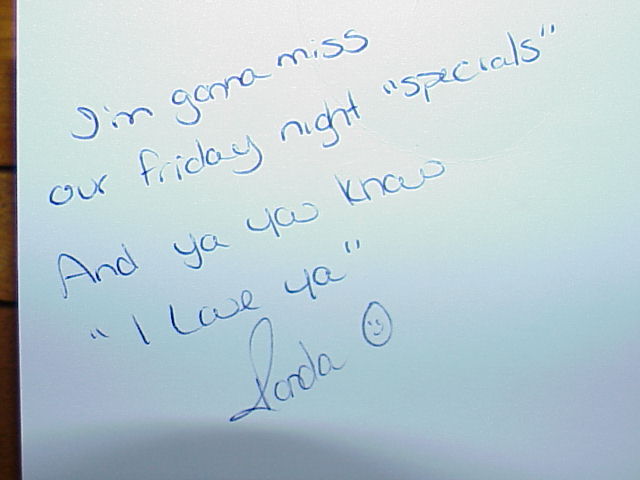 I'm gonna miss
our friday night "specials"
And ya you know
"I Love ya"